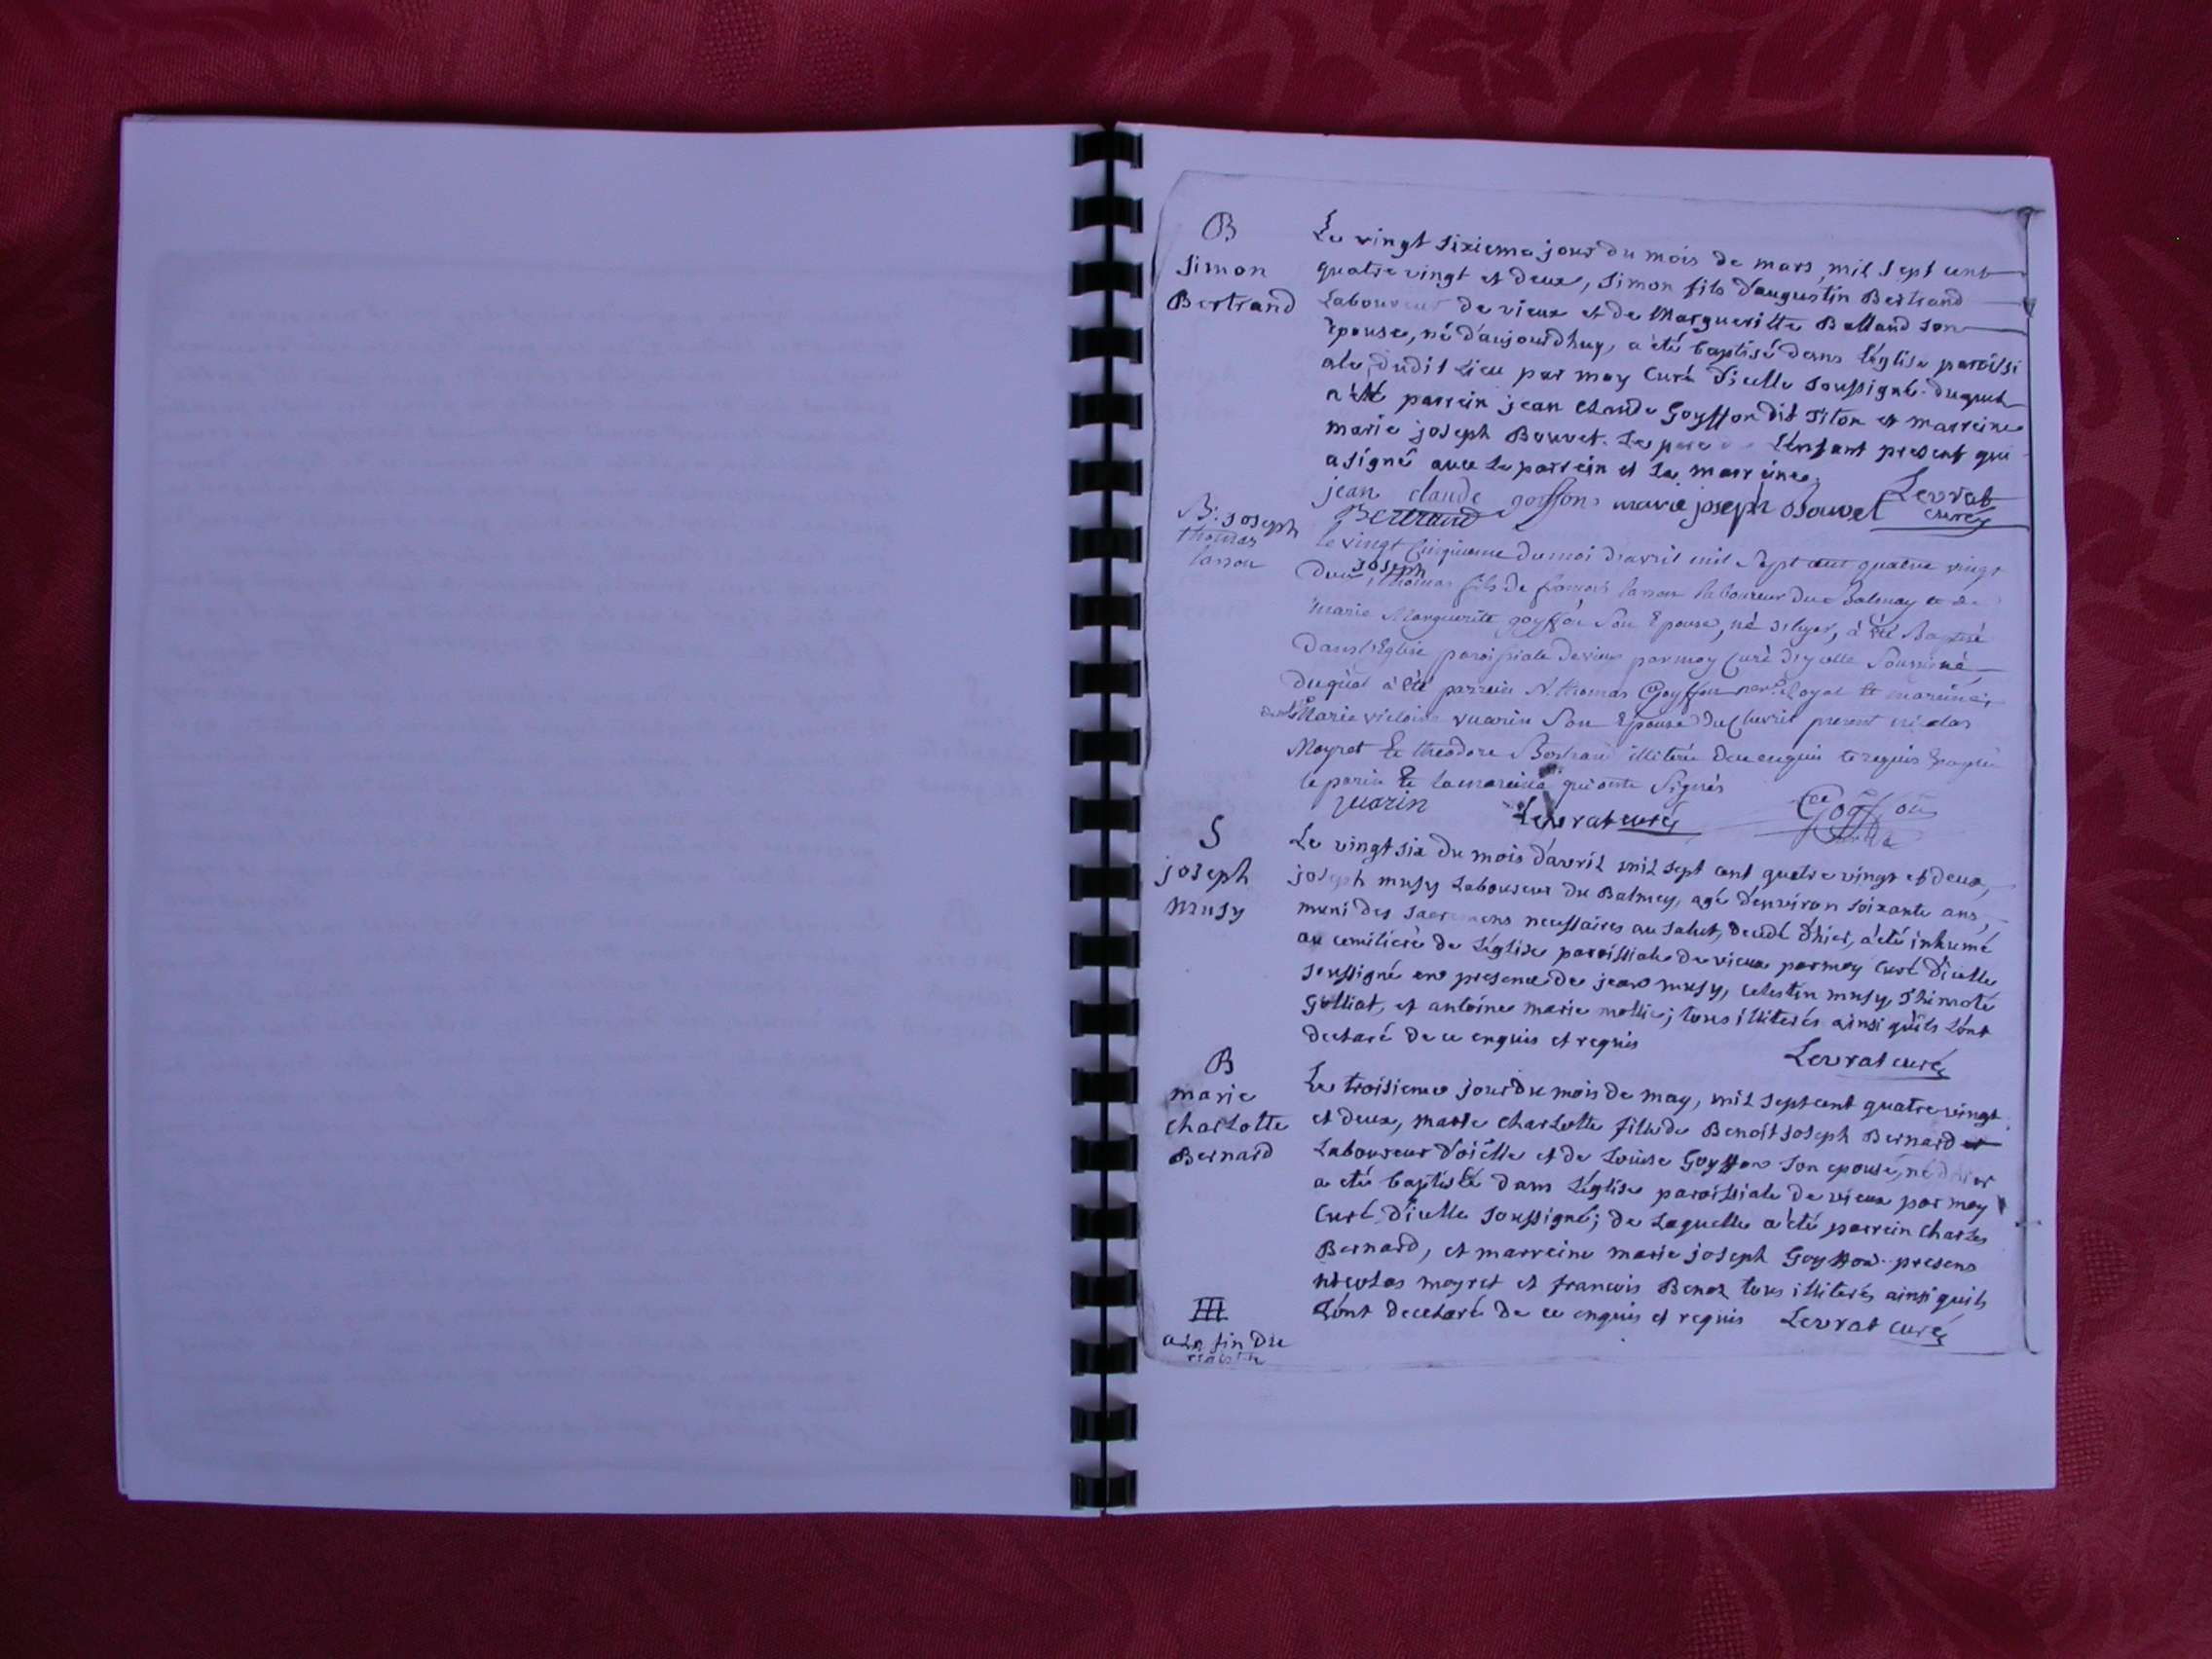 B
Simon
Bertrand
Le vingt sixieme jour du mois de mars mil sept cent
quatre vingt et deux, Simon fils d'augustin Bertrand
Laboureur de vieux et de Margueritte Balland son
Epouse, né d'aujourdhuy, a été baptisé dans l'église paroissi
ale dudit Lieu par moy Curé d'icelle soussigné. duquel
a été parrein jean Claude Goyffon dit Titon et marreine
marie joseph Bouvet. Le pere de L'enfant present qui
a signé avec Le parrein et La marreine.
jean claude goiffon marie joseph Bouvet Levrat
Bertrand curé
B. Joseph
thomas
lasson
le vingt cinquieme du moi d'avril mil sept cent quatre vingt
deux joseph thomas fils de françois lasson laboureur du Balmay et de
marie Marguerite goyffon Son Epouse, né hyer, à été Baptisé
dans l'Eglise paroissiale de vieux par moy Curé d'ycelle Soussigné
duquel à été parrein N. thomas Goyffon royal et mareine
Marie victoire vuarin Son Epouse present nicolas
Moyret Et theodore Bertrand illiteré de ce enquis et requis
le parin Et la mareine qui onts Signés
vuarin Levrat curé Goyffon
S
joseph
musy
Le vingt six du mois d'avril mil sept cent quatre vingt et deux,
joseph musy Laboureur du Balmey, agé d'environ soixante ans,
muni des sacremens necessaires au salut, decedé d'hier, a été inhumé
au cemitiere de L'église paroissiale de vieux par moy Curé d'icelle
soussigné en presence de jean musy, celestin musy, Thimoté
Golliat, et antoine marie mollie; tous illiterés ainsi qu'ils L'ont
declaré de ce enquis et requis
Levrat curé
B
marie
charLotte
Bernard
Le troisieme jour du mois de may, mil sept cent quatre vingt
et deux, marie charLotte fille de Benoit joseph Bernard
Laboureur d'oisselle et de Louise Goyffon son epouse, né d'hier
a été baptisée dans L'église paroissiale de vieux par moy
Curé d'icelle soussigné; de Laquelle a été parrein Charles
Bernard, et marreine marie joseph Goyffon. presens
nicolas moyret et francois Benoz tous illiterés ainsi quils
L'ont declaré de ce enquis et requis Levrat curé
III
a La fin du
registre